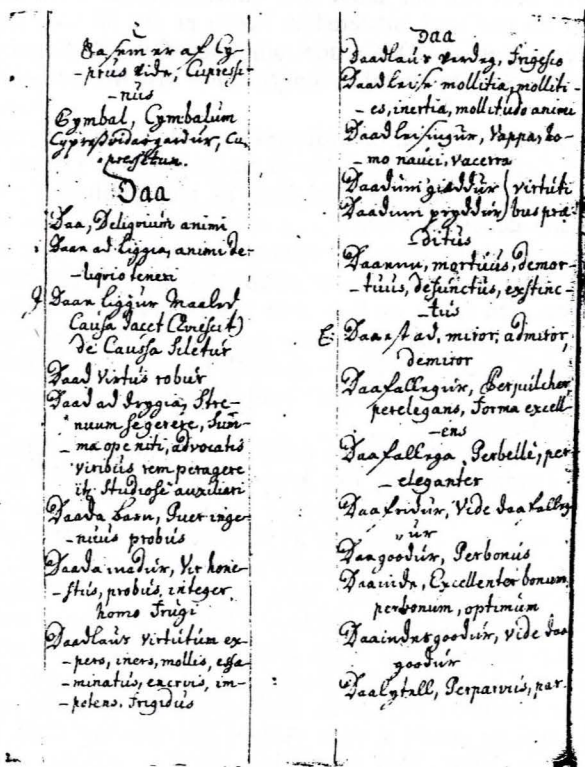 C
er af Cy-
-prus vide, Cupressi-
-nus
Cymbal, Cymbalum
Cu
-pressetum.
Daa
Daa, Deliquium animi
Daan ad liggia, animi de-
-liquio teneri
Daan liggur Maaled
Causa Jacet (
de Caussa siletur
Daad virtus robur
Daad ad drygia, Stre-
nuum se gerere, Sum-
-ma ope niti, advocatis
viribus rem peragere
it: Studiose auxiliari
Daada barn, Puer inge-
-nuus probus
Daada madur, Vir hone-
-stus, probus, integer,
homo frugi
Daadlaus virtutum ex-
-pers, iners, mollis, effæ-
-minatus, enervis, im-
-potens, frigidus
Daa
Daadlaus verdeg, frigesco
Daadleise mollitia, molliti-
-es, inertia, mollitudo animi
Daadleisingur, Vappa, ho-
-mo nauci, vacerra
Daadum giæddur (virtuti
Daadum pryddur) bus præ-
ditus
Daainn, mortuus, demor-
-tuus, defunctus, exstinc-
-tus
E: Daast ad, miror, admiror,
demiror
Daafallegur, Perpulcher,
perelegans, forma excell-
-ens
Daafallega, Perbelle, per-
-eleganter
Daafridur, Vide daafalleg
ur
Daagoodur, Perbonus
Daainde, Excellenter bonum,
perbonum, optimum
Daaindesgoodur, vide daa
goodur
Daalytell, Perparvus, par